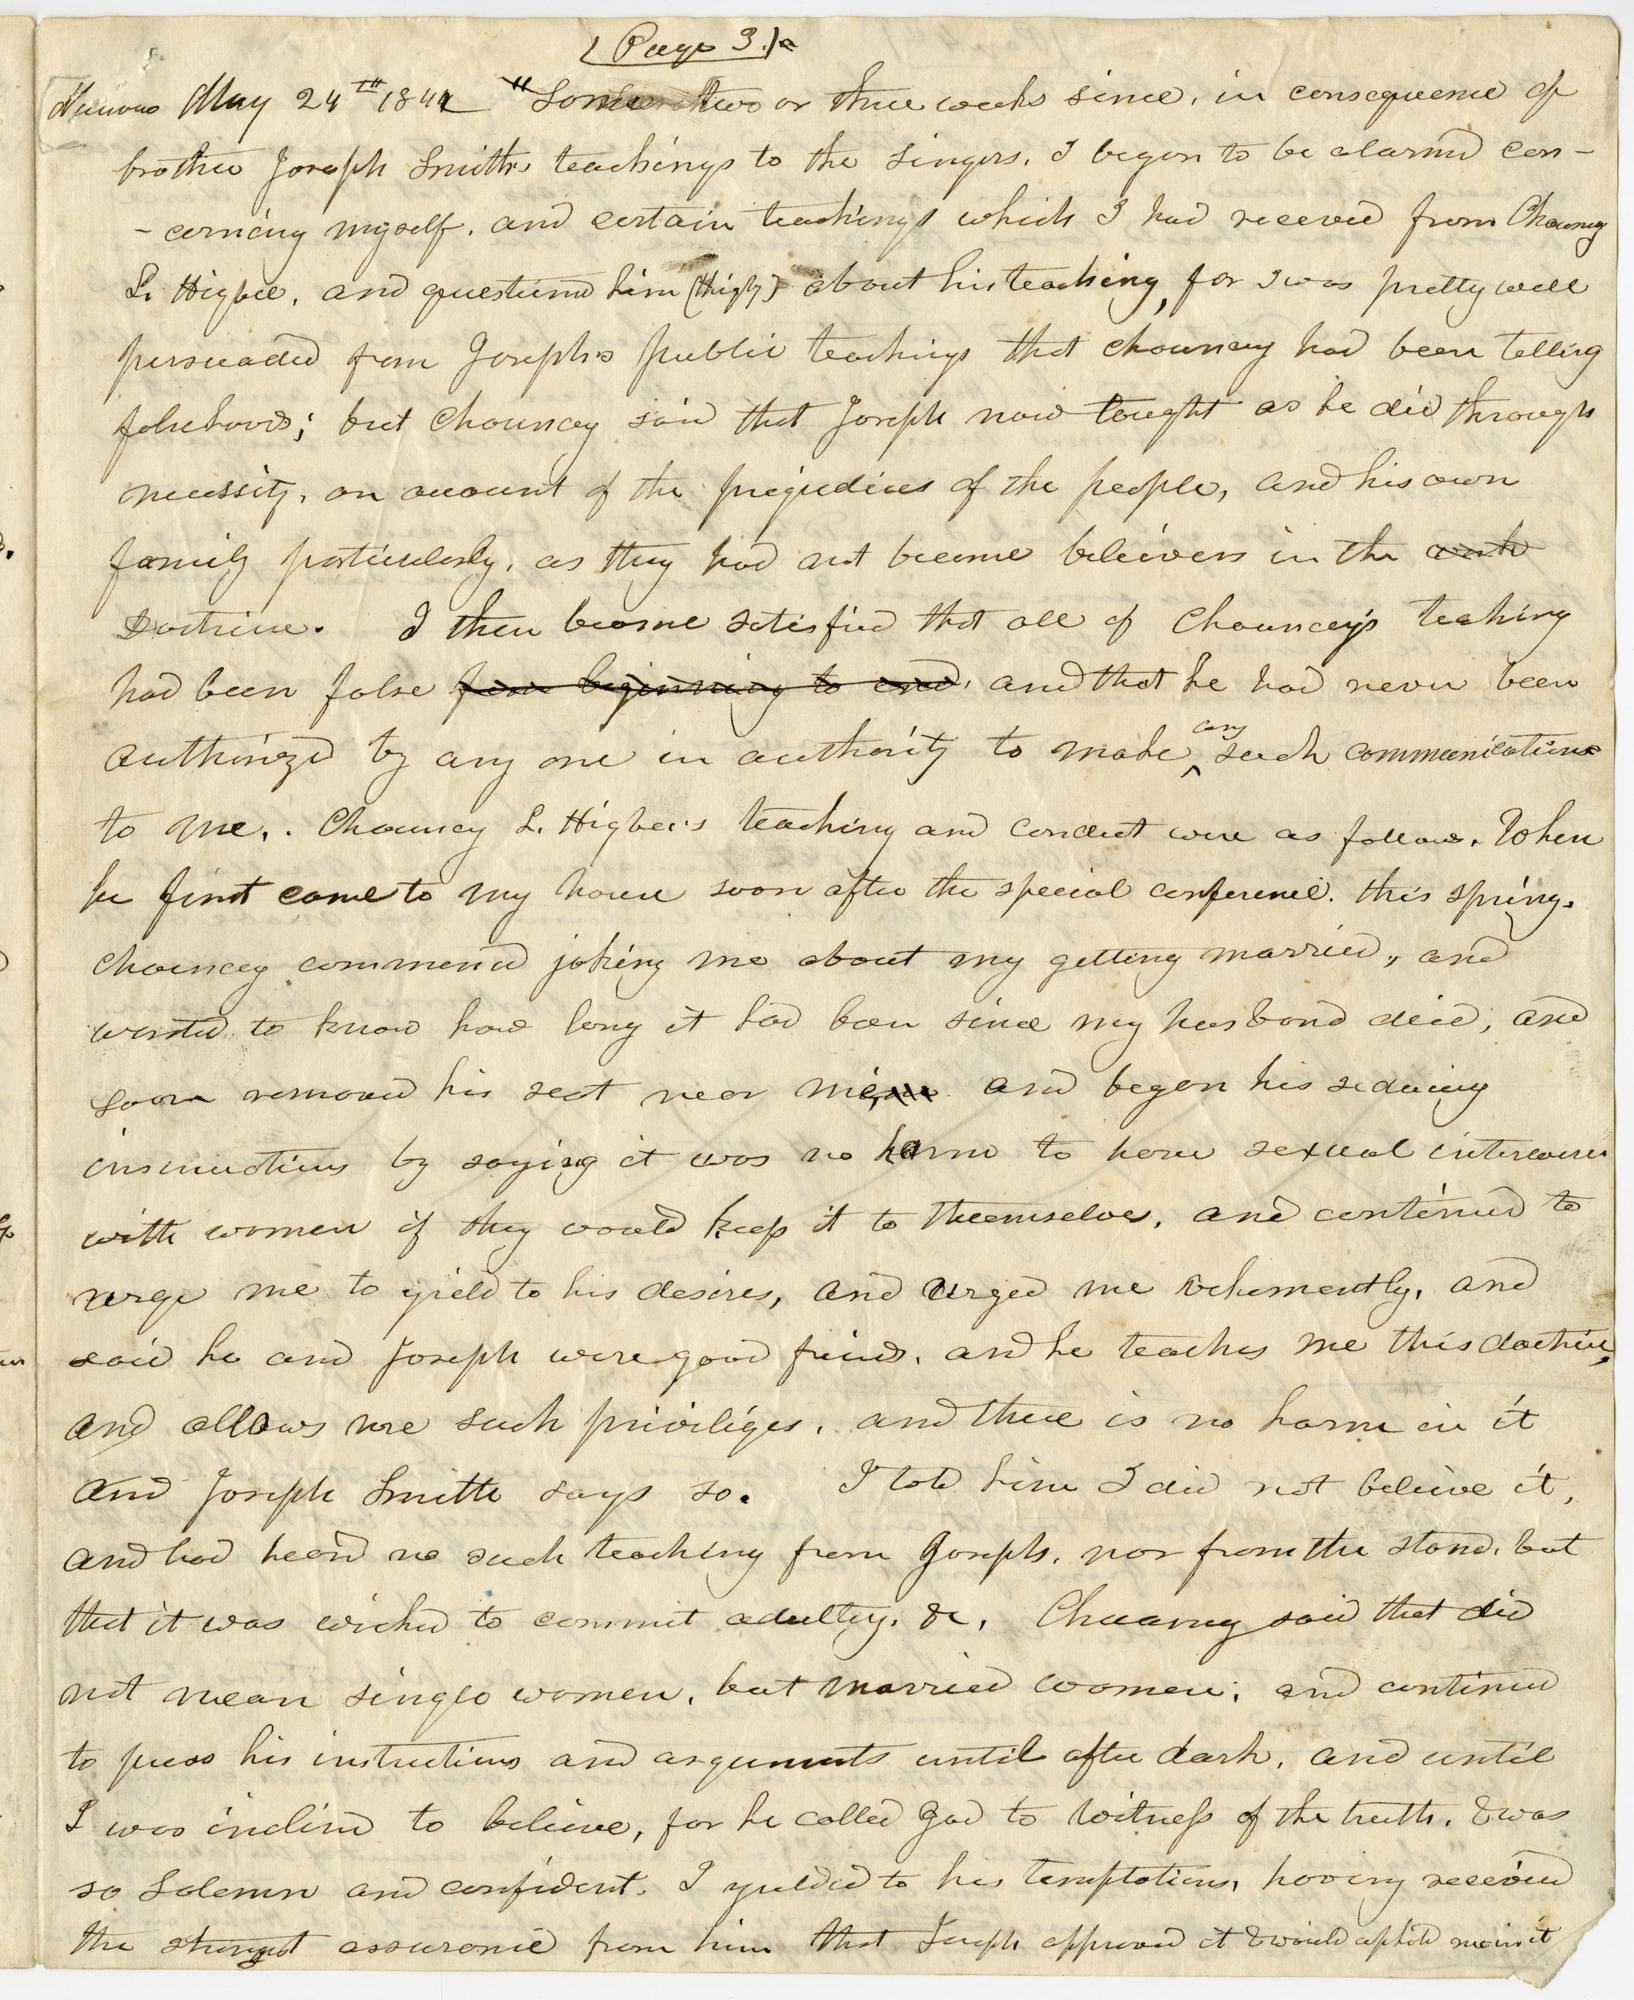 (Page 3.)
Nauvoo May 24th 1842 "Some two or three weeks since, in consequence of
brother Joseph Smith's teachings to the singers, I began to be alarmed con-
-cerning myself, and certain teachings which I had received from Chauncy
L. Higbee, and questioned him (Higby) about his teaching, for I was pretty well
persuaded from Joseph's public teachings that Chauncey had been telling
falsehoods; but Chauncey said that Joseph now taught as he did through
necessity, on account of the prejudices of the people, and his own
family particularly, as they had not become believers in the
doctrine. I then become satisfied that all of Chauncey's teaching
had been false from beginning to end, and that he had never been
authorized by any one in authority to make any such communication
to me. . Chauncey L. Higbee's teaching and conduct were as follows. When
he first come to my house soon after the special conference this spring,
Chauncey commenced joking me about my getting married, and
wanted to know how long it had been since my husband died, and
soon removed his seat near me and began his seducing
insinuations by saying it was no harm to have sexual intercourse
with women if they would keep it to themselves, and continued to
urge me to yield to his desires, and urged me vehemently, and
said he and Joseph were good friends, and he teaches me this doctrine,
and allows me such priviliges, and there is no harm in it
and Joseph Smith says so. I told him I did not believe it,
and had heard no such teaching from Joseph, nor from the stand, but
that it was wicked to commit adultry, &c. Chauncy said that did
not mean single women, but married women; and continued
to press his instructions and arguments until after dark, and until
I was inclined to believe, for he called God to witness of the truth, & was
so solemn and confident, I yielded to his temptations, having received
the strongest assurance from him that Joseph approved it & would uphold me in it